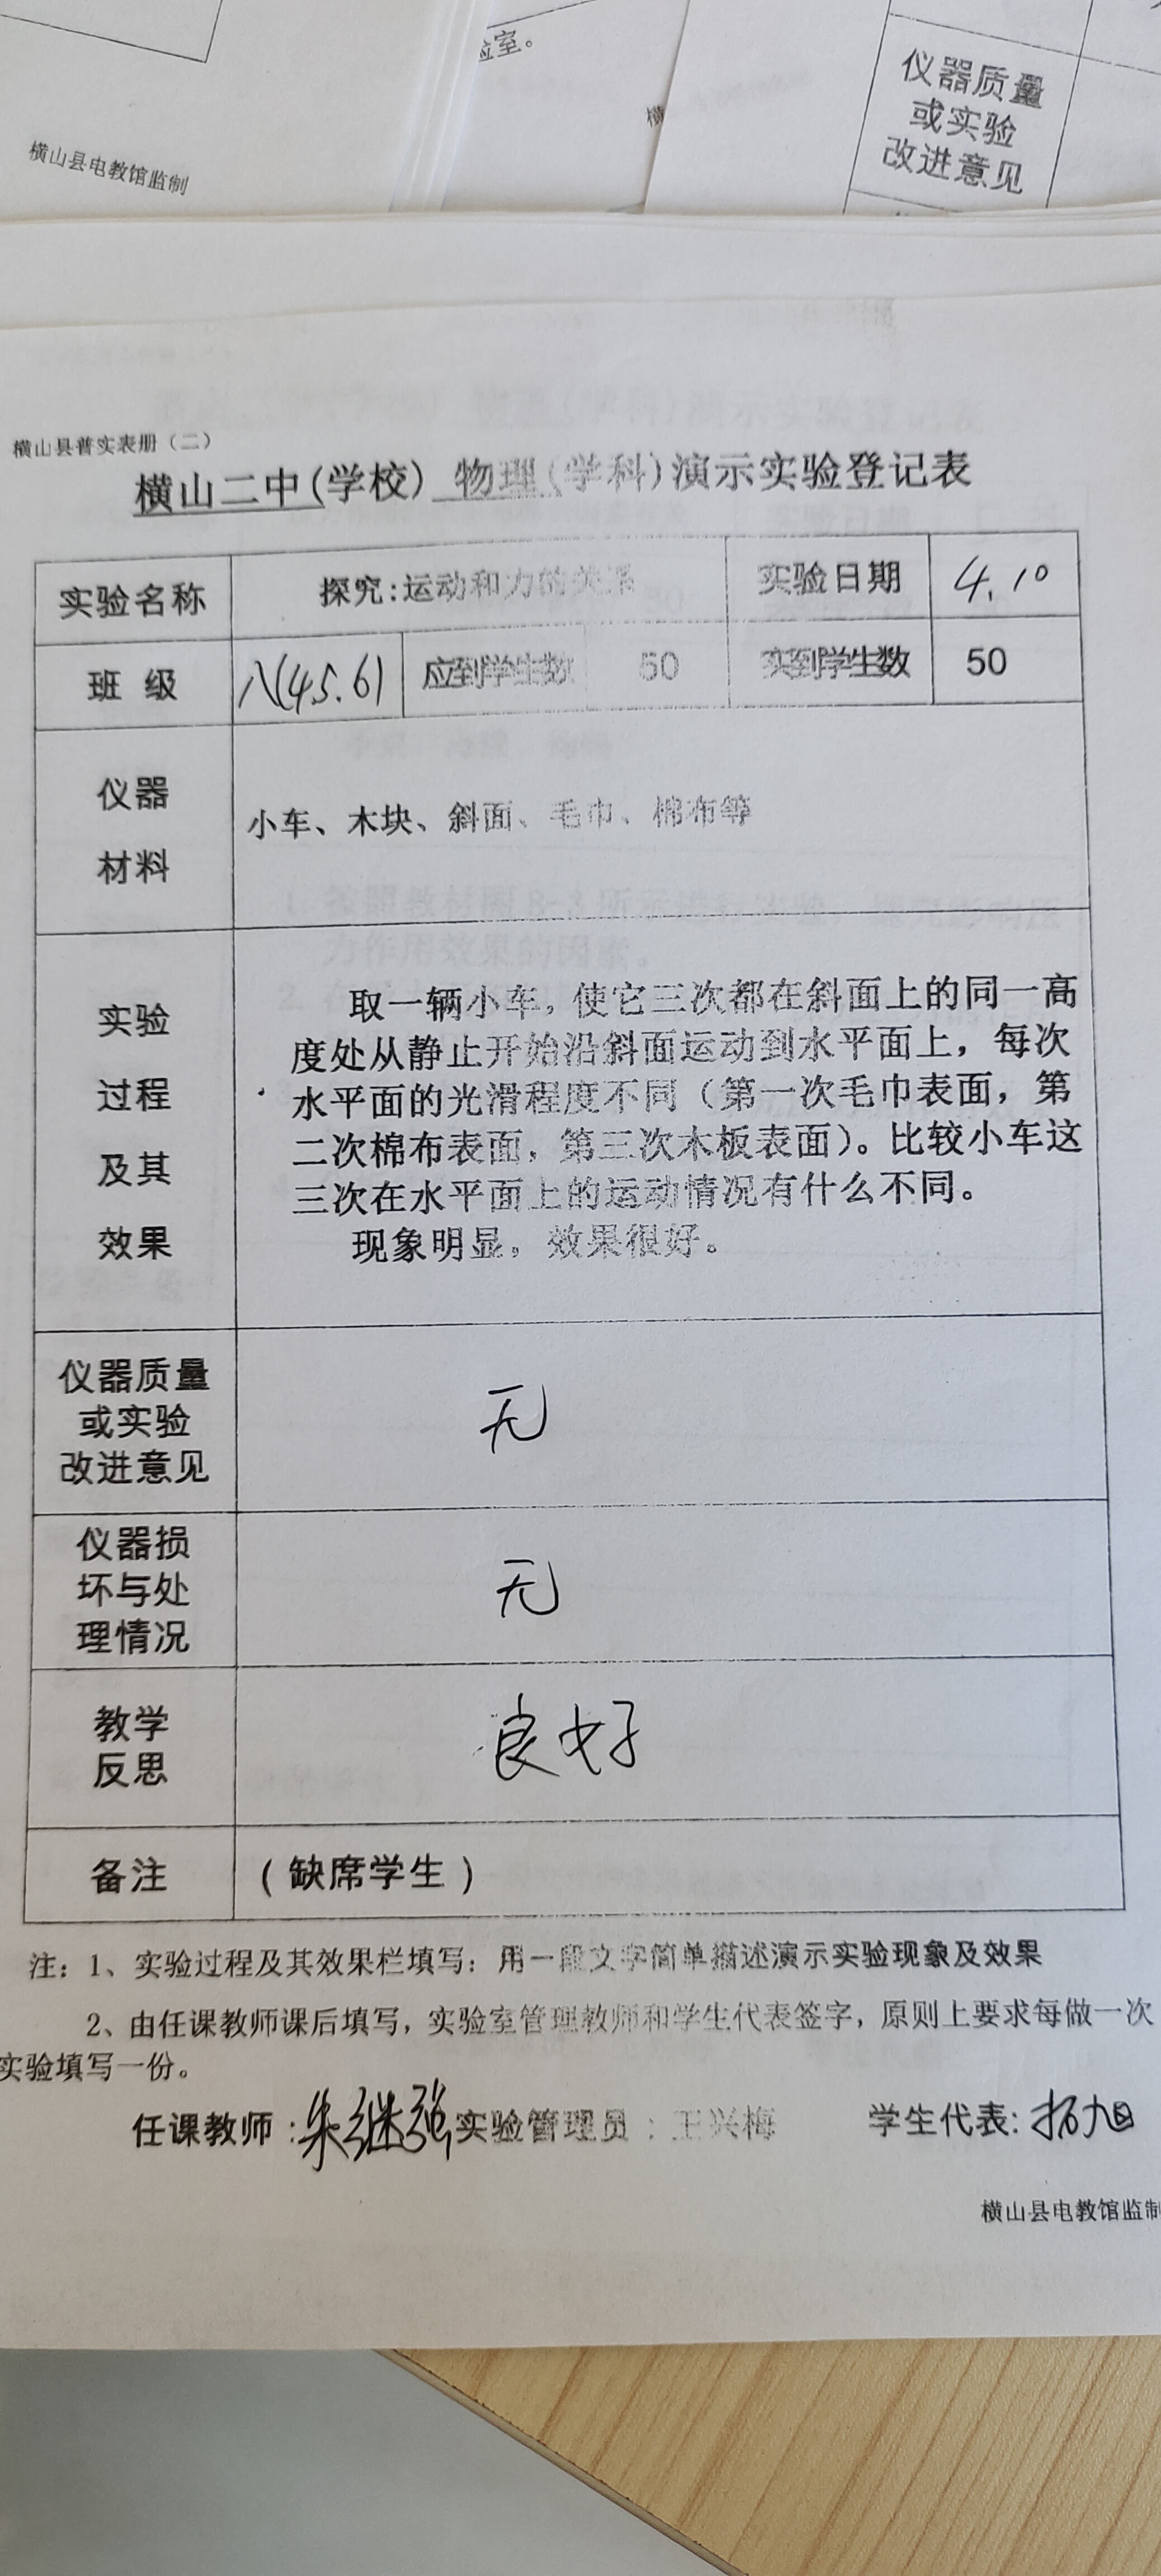 验室。
仪器质量
或实验
改进意见
横山县电教馆监制
横
横山县普实表册（二）
横山二中(学校) 物理(学科)演示实验登记表
实验名称 探究:运动和力的关系 实验日期 4.10
班 级 八(45.6) 应到学生数 50 实到学生数 50
仪器
材料
小车、木块、斜面、毛巾、棉布等
实验
过程
及其
效果
取一辆小车，使它三次都在斜面上的同一高
度处从静止开始沿斜面运动到水平面上，每次
水平面的光滑程度不同（第一次毛巾表面，第
二次棉布表面，第三次木板表面）。比较小车这
三次在水平面上的运动情况有什么不同。
现象明显，效果很好。
仪器质量
或实验
改进意见
无
仪器损
坏与处
理情况
无
教学
反思
良好
备注 (缺席学生)
注：1、实验过程及其效果栏填写：用一段文字简单描述演示实验现象及效果
2、由任课教师课后填写，实验室管理教师和学生代表签字，原则上要求每做一次
实验填写一份。
任课教师:朱继强 实验管理员：王兴梅 学生代表:拓旭
横山县电教馆监制